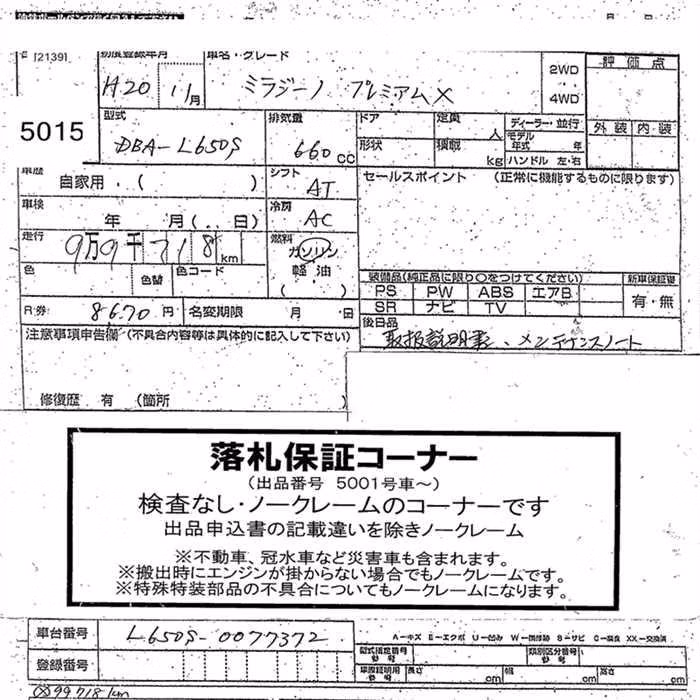 [2139]
初度登録年月 車名・グレード
H20 11月 ミラジーノ プレミアムX
2WD
4WD
評価点
外装 内装
5015
型式 排気量 ドア 定員 人 ディーラー・並行
DBA-L650S 660 CC 形状 積載 kg モデル年式 年
ハンドル 左・右
車歴 自家用・( ) シフト AT
セールスポイント (正常に機能するものに限ります)
車検 年 月(. 日) 冷房 AC
走行 9万9千718km 燃料 ガソリン
軽油
( )
色 色替 色コード
装備品(純正品に限り○をつけてください) 新車保証書
PS PW ABS エアB 有・無
SR ナビ TV
R券 8670円 名変期限 月 日
後日品
取扱説明書、メンテナンスノート
注意事項申告欄 (不具合内容等は具体的に記入して下さい)
修復歴 有 (箇所 )
落札保証コーナー
(出品番号 5001号車~)
検査なし・ノークレームのコーナーです
出品申込書の記載違いを除きノークレーム
※不動車、冠水車など災害車も含まれます。
※搬出時にエンジンが掛からない場合でもノークレームです。
※特殊特装部品の不具合についてもノークレームになります。
A-キズ E-エクボ U-凹み W-補修跡 S-サビ C-腐食 XX-交換済
車台番号 L650S-0077372
型式指定番号 類別区分番号
登録番号
車検証記載番号 長さ cm 幅 cm 高さ cm
99718km